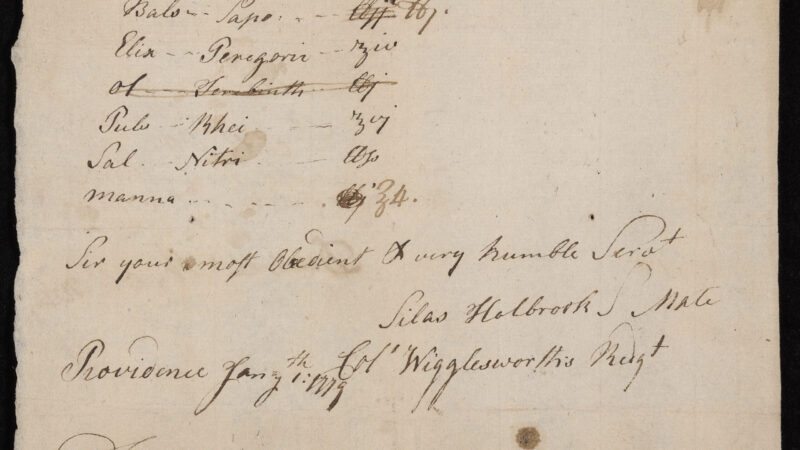 Bals - - Sapo. - - - ℔j.
Elix - - Peregorii - - ʒiv
Ol - - Terebinth - ℔j
Pulv - - Rhei - - ʒvj
Sal - - Nitri - - - ℔ss
manna - - - - - - ℥4.
Sir your most Obedient & very humble Servt
Silas Holbrook S Mate
Providence Jany th 1: 1779 Colo Wigglesworths Regt